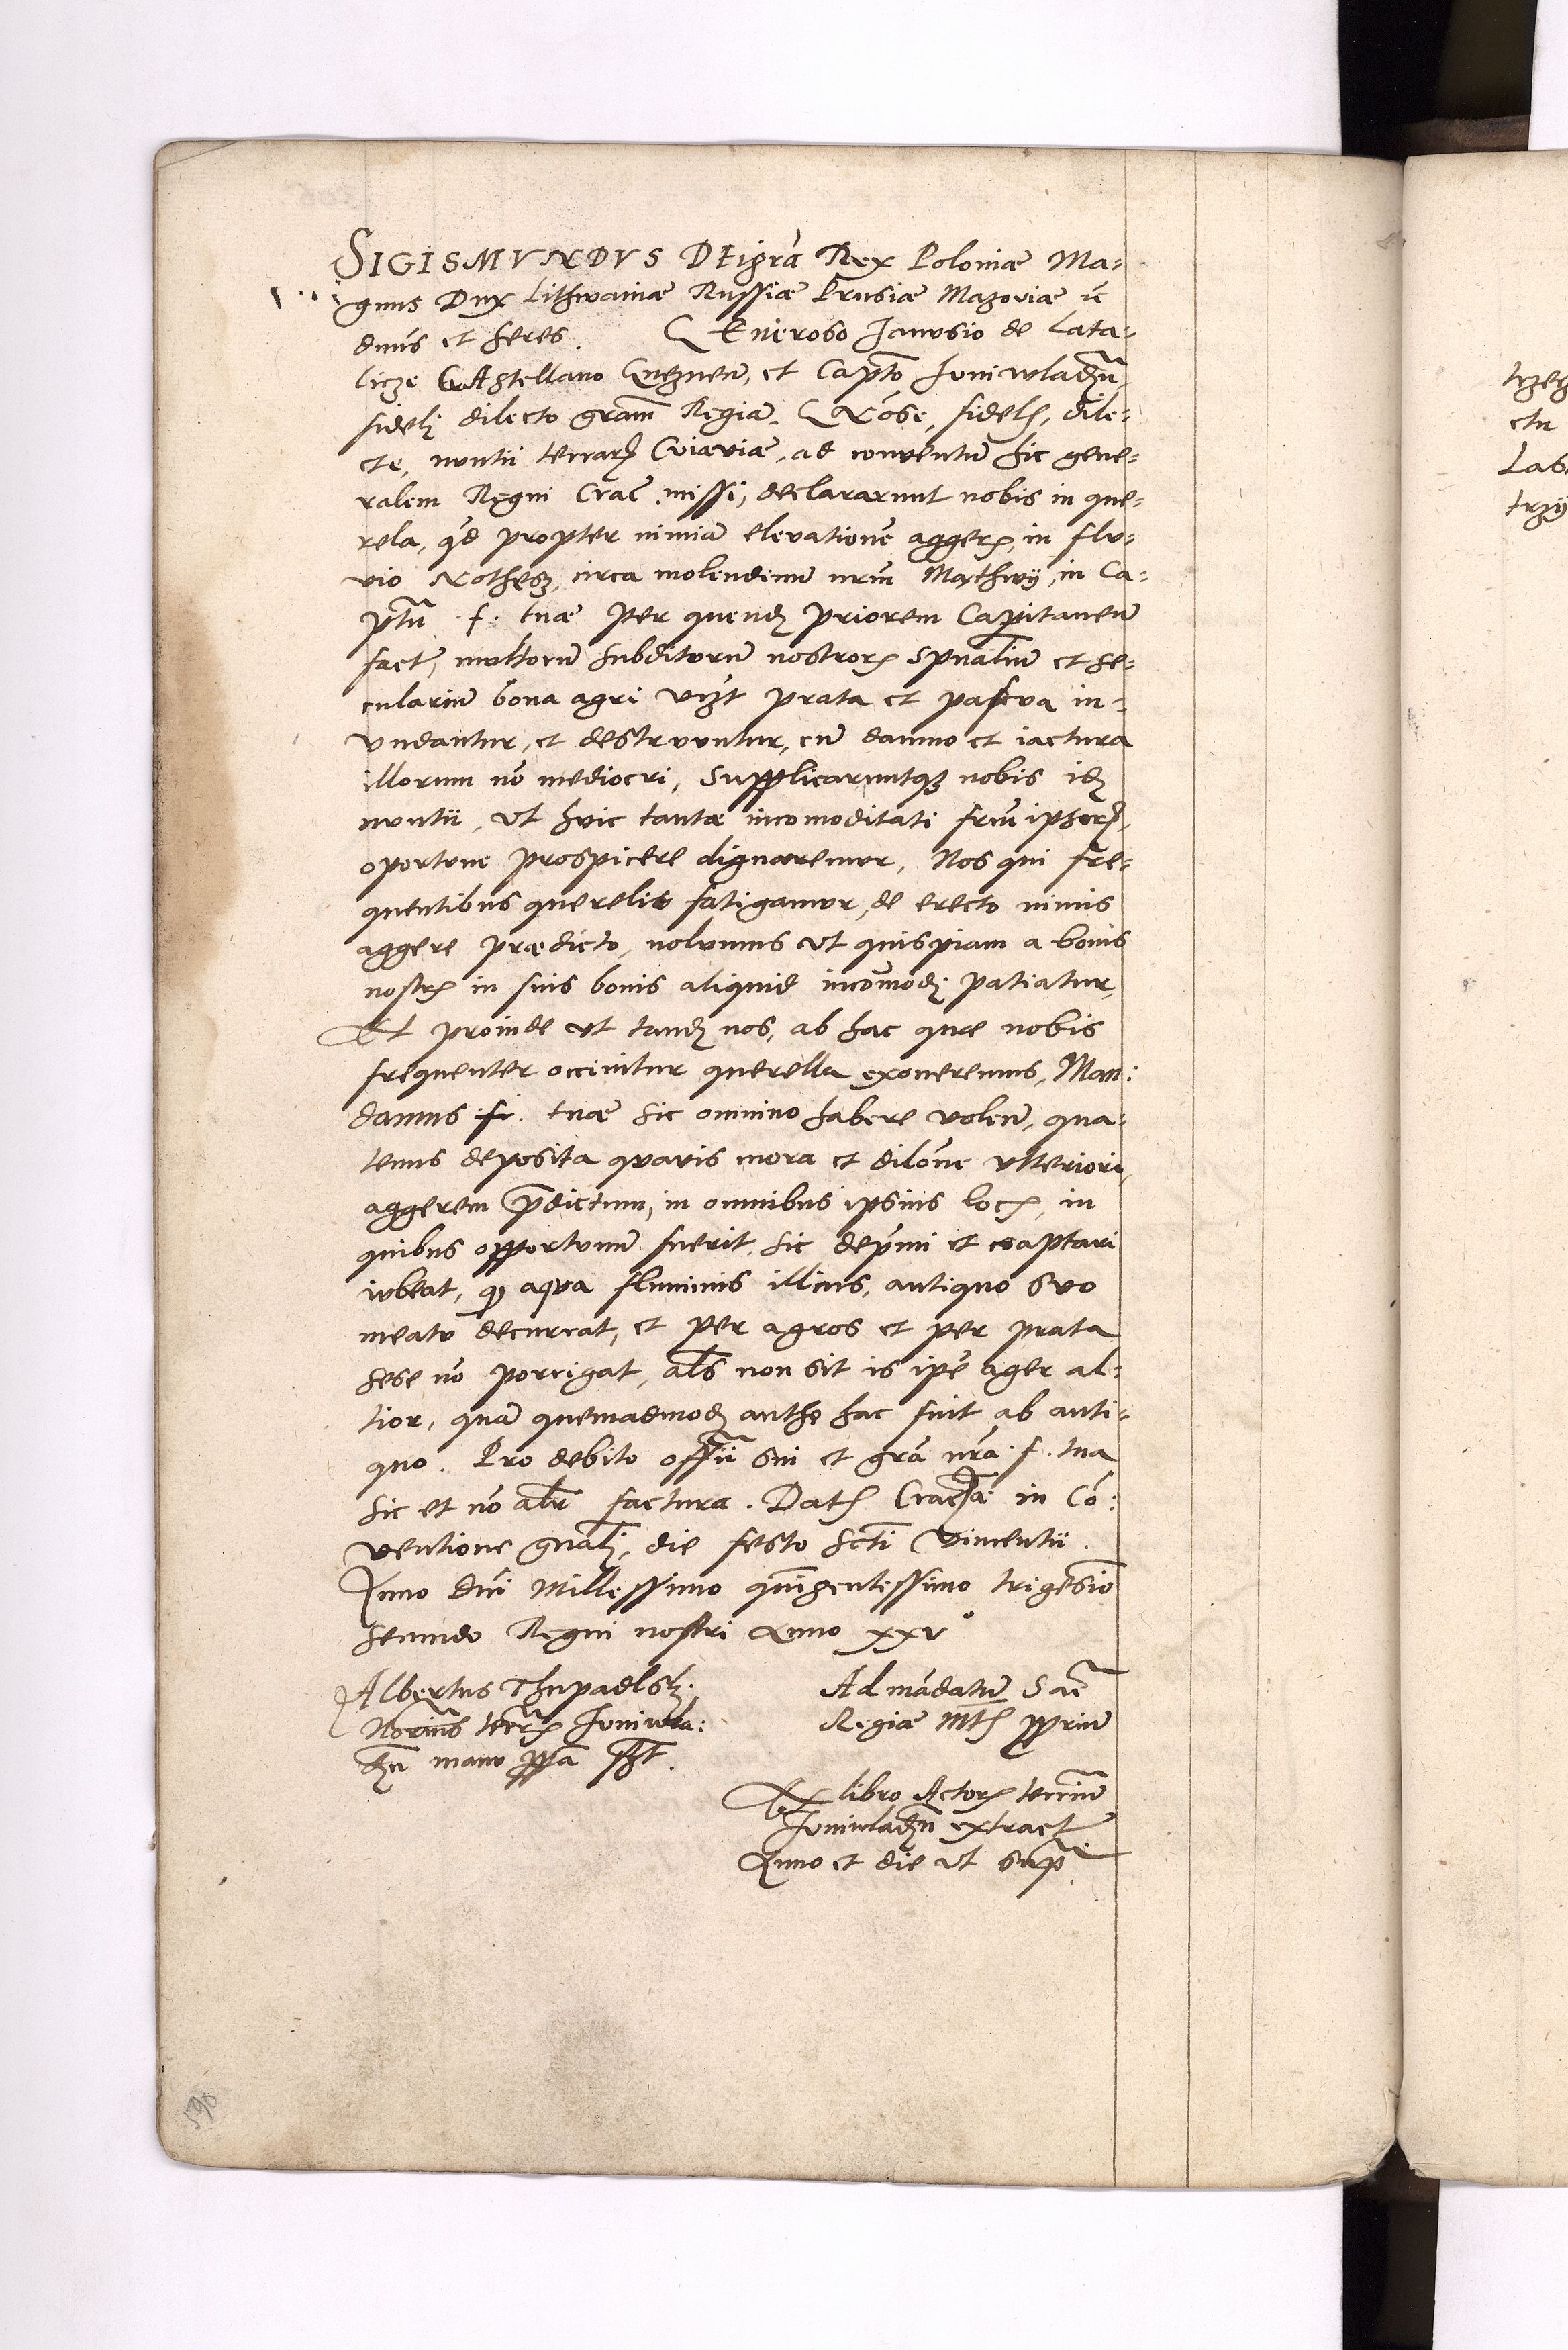 SIGISMVNDVS DEi grã Rex Poloniæ Ma=
gnus Dux Lithwaniæ Russiæ Prusiæ Mazoviæ
dnus et heres. GEneroso Janusio de Lata=
licze CAstellano Gneznen, et Capto Juniwladn
fideli dilecto gram Regia. GNose, fidelis, dile=
cte, nuntii terrarum Cuiaviæ, ad conventum hic gene=
ralem Regni Crac missi, declararunt nobis in que=
rela, qd propter nimiã elevationẽ aggeris, in flu=
vio Nothesz, circa molendinũ nrm Mathwy, in Ca=
ptu f. tuæ per quendam priorem Capitaneũ
fact, multorũ subditorũ nostrorum spualiũ et se=
culariũ bona agri vizt prata et pascua in=
undantur, et destruuntur, cũ damno et iactura
illorum nõ mediocri, supplicaruntqz nobis idem
nuntii, ut huic tantæ incomoditati frum ipsorum,
oportune prospicere dignaremur, Nos qui fre=
quentibus querelis fatigamur, de erecto nimis
aggere prædicto, nolumus ut quispiam a bonis
nostris in suis bonis aliquid incõmodi patiatur,
Et proinde ut tandem nos, ab hac quæ nobis
frequenter occinitur querella exoneremus, Man:
damus f. tuæ sic omnino habere volen, qua=
tenus deposita quavis mora et dilone ulteriori,
aggerem p̃dictum, in omnibus ipsius locis, in
quibus opportunũ fuerit, sic depmi et coaptari
iubeat, qz aqua fluminis illius, antiquo suo
meatu decurrat, et per agros et per prata
sese nõ porrigat, als non sit is ipe ager al=
tior, quã quemadmodum anthe hac fuit ab anti=
quo. Pro debito offii sui et grã nrã f. tua
sic et nõ alr factura. Datum Cracoviæ in Cõ:
ventione gnali, die festo scti Vincentii.
Anno dni Millessimo quingentessimo trigesimo
secundo Regni nostri Anno xxvº
Albertus Thupadlski Ad mãdatũ Sac
Notarius terris Juniwla: Regiæ Mtis ppriũ
dn manu ppa sszt.
Ex libro Actorum terriũ
Juniwladn extract
Anno et die ut sup
590
ctu